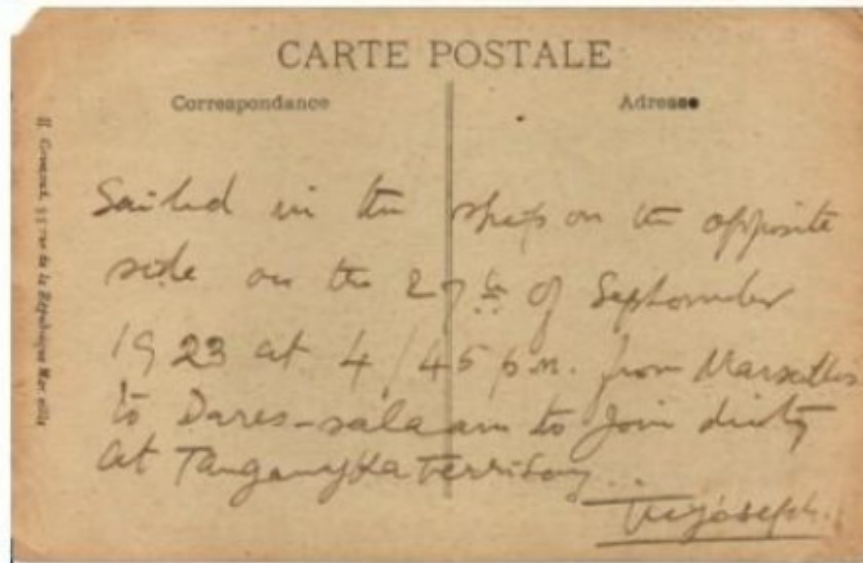 CARTE POSTALE
Correspondance
Adresse
rue de la République Marseille
Sailed in the ship on the opposite
side on the 27th of September
1923 at 4/45 p.m. from Marseilles
to Dares-salaam to join duty
at Tanganyka Territory...